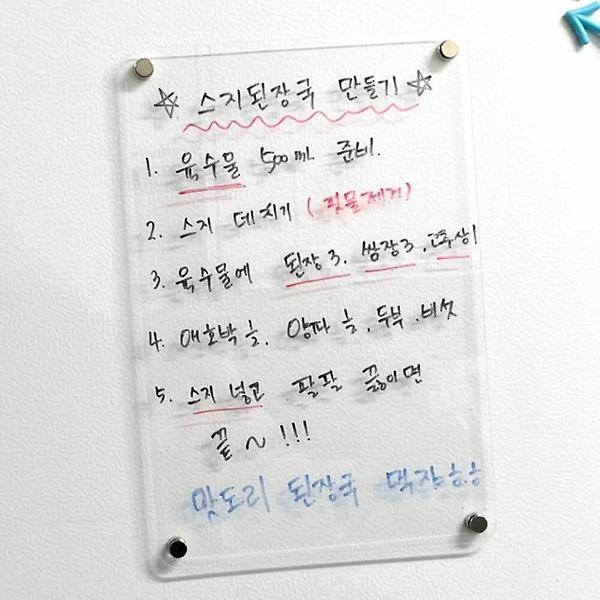 ☆ 스지된장국 만들기 ☆
1. 육수물 500ml 준비.
2. 스지 데치기 (핏물제거)
3. 육수물에 된장3. 쌈장3. 고추장1
4. 애호박 ½. 양파 ½. 두부. 버섯
5. 스지 넣고 팔팔 끓이면
끝~!!!
맛도리 된장국 먹쟈ㅎ.ㅎ